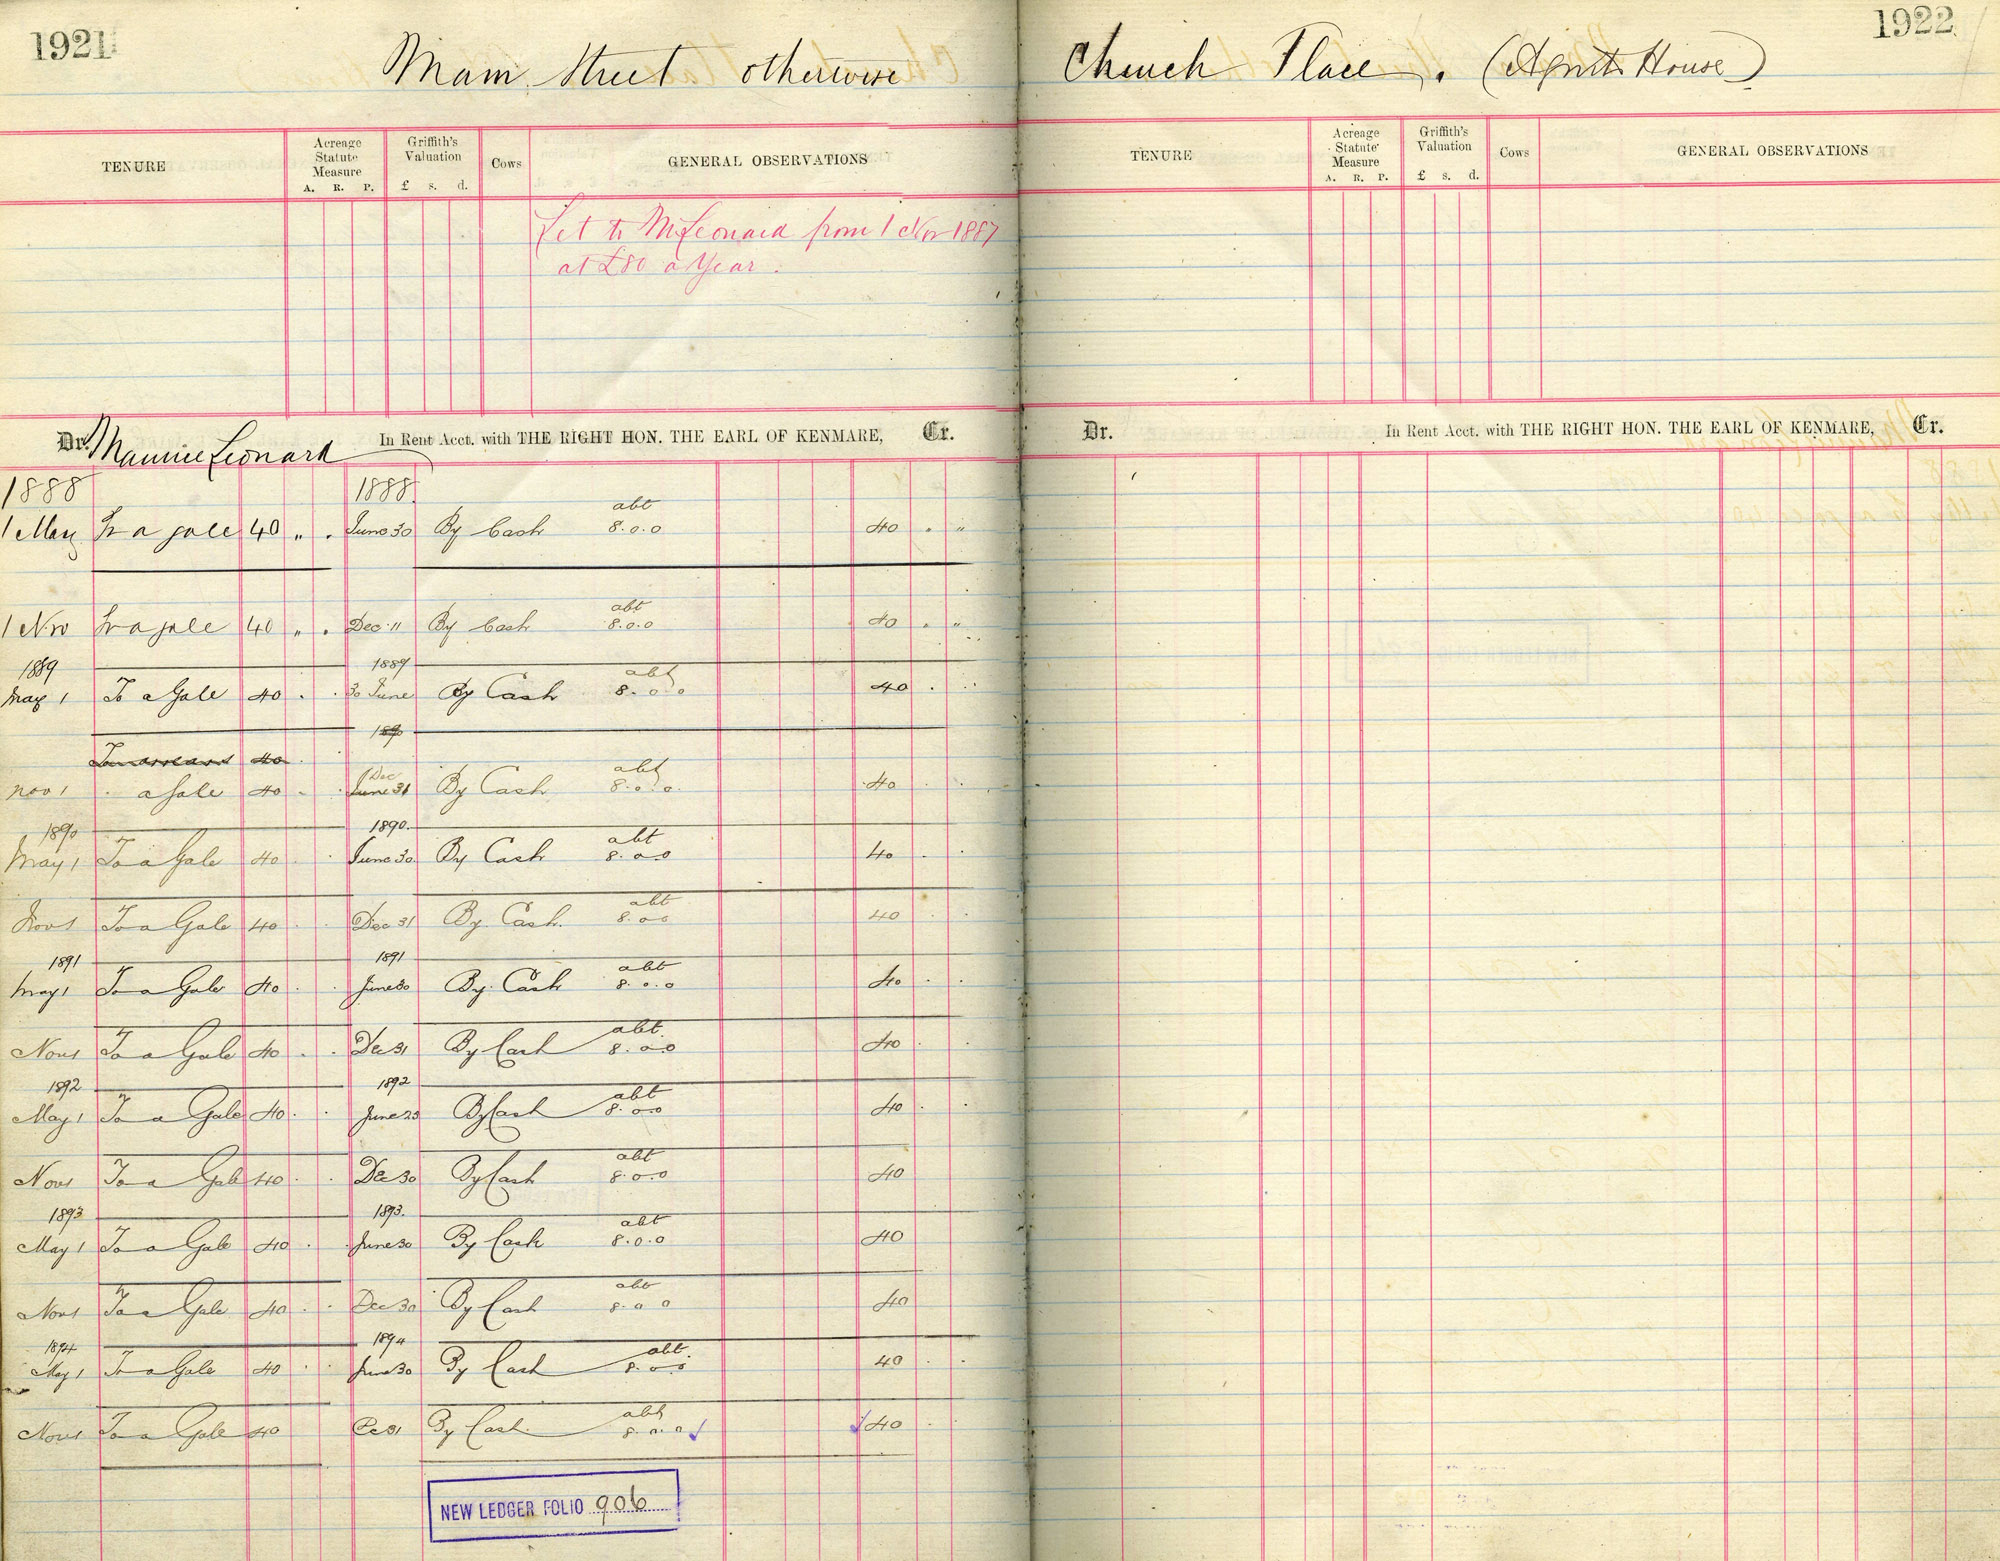 1921
1922
Main Street otherwise Church Place. (Agents House)
TENURE
Acreage Statute Measure
A. R. P.
Griffith's Valuation
£ s. d.
Cows
GENERAL OBSERVATIONS
TENURE
Acreage Statute Measure
A. R. P.
Griffith's Valuation
£ s. d.
Cows
GENERAL OBSERVATIONS
Let to M Leonard from 1 Nov 1887
at £80 a Year.
Dr. Maurice Leonard In Rent Acct. with THE RIGHT HON. THE EARL OF KENMARE, Cr.
Dr. In Rent Acct. with THE RIGHT HON. THE EARL OF KENMARE, Cr.
1888 1888
abt
1 May To a gale 40 " . June 30 By Cash 8.0.0 40 " "
abt
1 Nov To a gale 40 " . Dec 11 By Cash 8.0.0 40 " "
1889 1889 abt
May 1 To a Gale 40 . . 30 June By Cash 8.0.0 40 . .
1890
To arrears 40
Dec abt
Nov 1 " a Gale 40 . . June 31 By Cash 8.0.0 40 . .
1890 1890. abt
May 1 To a Gale 40 . . June 30 By Cash 8.0.0 40 . .
abt
Nov 1 To a Gale 40 . . Dec 31 By Cash. 8.0.0 40 . .
1891 1891 abt
May 1 To a Gale 40 . . June 30 By Cash 8.0.0 40 . .
abt
Nov 1 To a Gale 40 . . Dec 31 By Cash 8.0.0 40 . .
1892 1892 abt
May 1 To a Gale 40 . . June 23 By Cash 8.0.0 40 . .
abt
Nov 1 To a Gale 40 . . Dec 30 By Cash 8.0.0 40
1893 1893. abt
May 1 To a Gale 40 . . June 30 By Cash 8.0.0 40
abt
Nov 1 To a Gale 40 . . Dec 30 By Cash 8.0.0 40
1894 1894 abt
May 1 To a Gale 40 . . June 30 By Cash 8.0.0 40 . .
abt
Nov 1 To a Gale 40 Dec 31 By Cash. 8.0.0 ✓ ✓ 40 . .
NEW LEDGER FOLIO 906